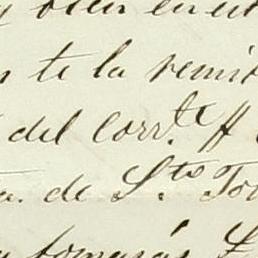 y bien en
te la remi
del corr.te
ta. de S.to To
tomará